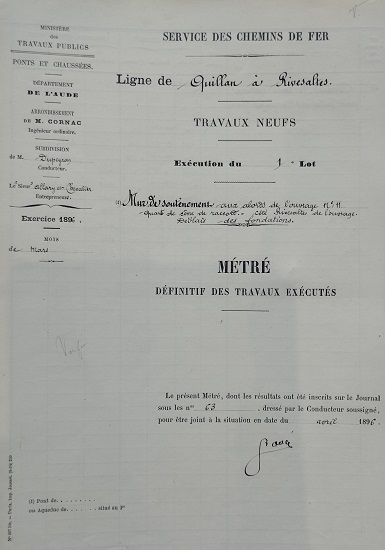 MINISTÈRE
des
TRAVAUX PUBLICS
PONTS ET CHAUSSÉES.
DÉPARTEMENT
DE L'AUDE
ARRONDISSEMENT
DE M. CORNAC
Ingénieur ordinaire.
SUBDIVISION
de M. Dupeyron
Conducteur.
Entrepreneur.
Exercice 1896.
MOIS
de Mars
SERVICE DES CHEMINS DE FER
Ligne de Quillan à Rivesaltes.
TRAVAUX NEUFS
Exécution du 1er Lot
(1) Mur de soutènement aux abords de l'ouvrage N° 11
Quart de cône de raccord côté Rivesaltes de l'ouvrage.
Déblais des fondations.
MÉTRÉ
DÉFINITIF DES TRAVAUX EXÉCUTÉS
Le présent Métré, dont les résultats ont été inscrits sur le Journal
sous les nos 63, dressé par le Conducteur soussigné,
pour être joint à la situation en date du avril 1896.
(1) Pont de
ou Aqueduc de situé au Pt